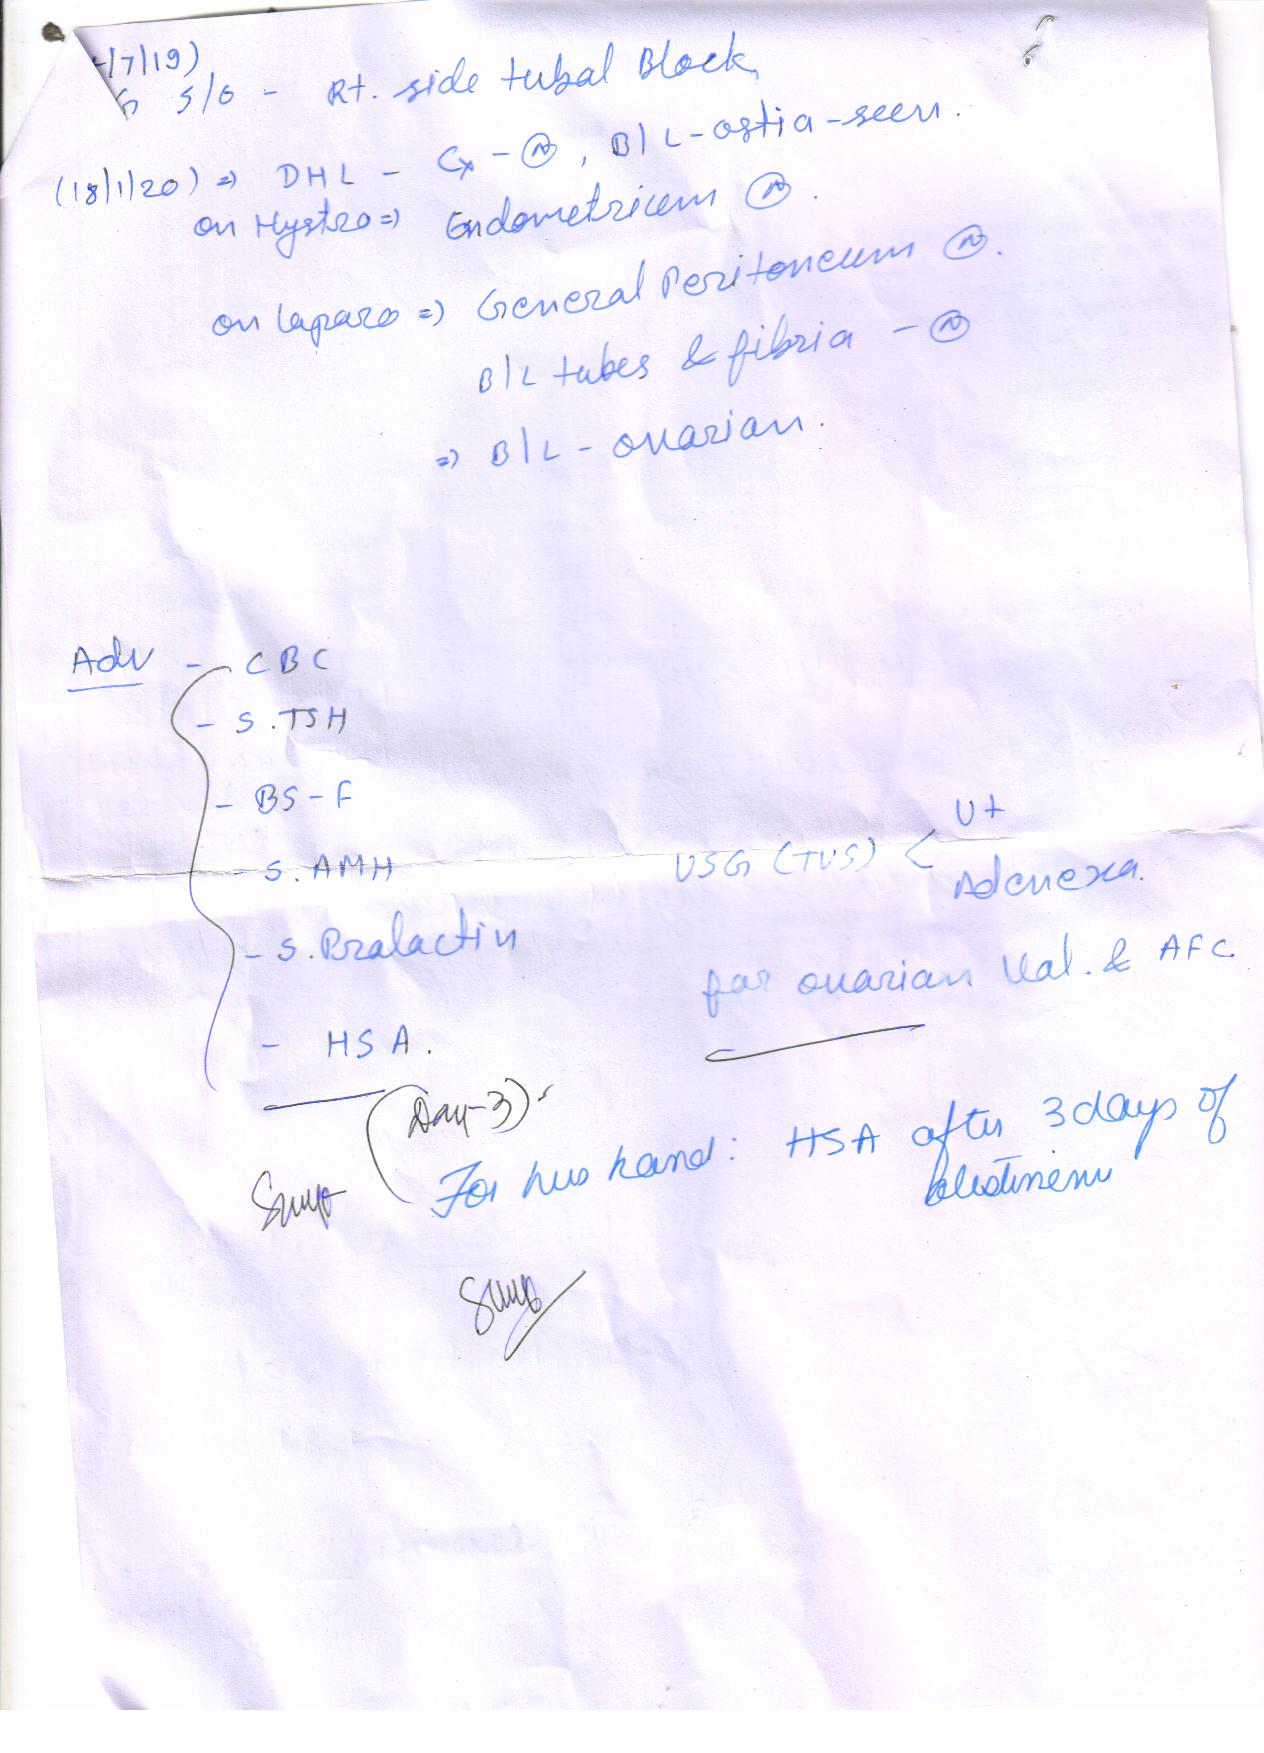 /7/19)
S/O - Rt. side tubal Block
(18/1/20) => DHL - Cx - Ⓝ, B/L - ostia - seen.
on Hystro => Endometrium Ⓝ.
on laparo => General Peritoneum Ⓝ.
B/L tubes & fibria - Ⓝ
=> B/L - ovarian.
Adv - CBC
- S.TSH
- BS-F
- S.AMH
- S.Pralactin
- HSA.
(Day-3)
USG (TVS) < Ut
Adenexa.
for ovarian Val. & AFC
For husband: HSA after 3 days of